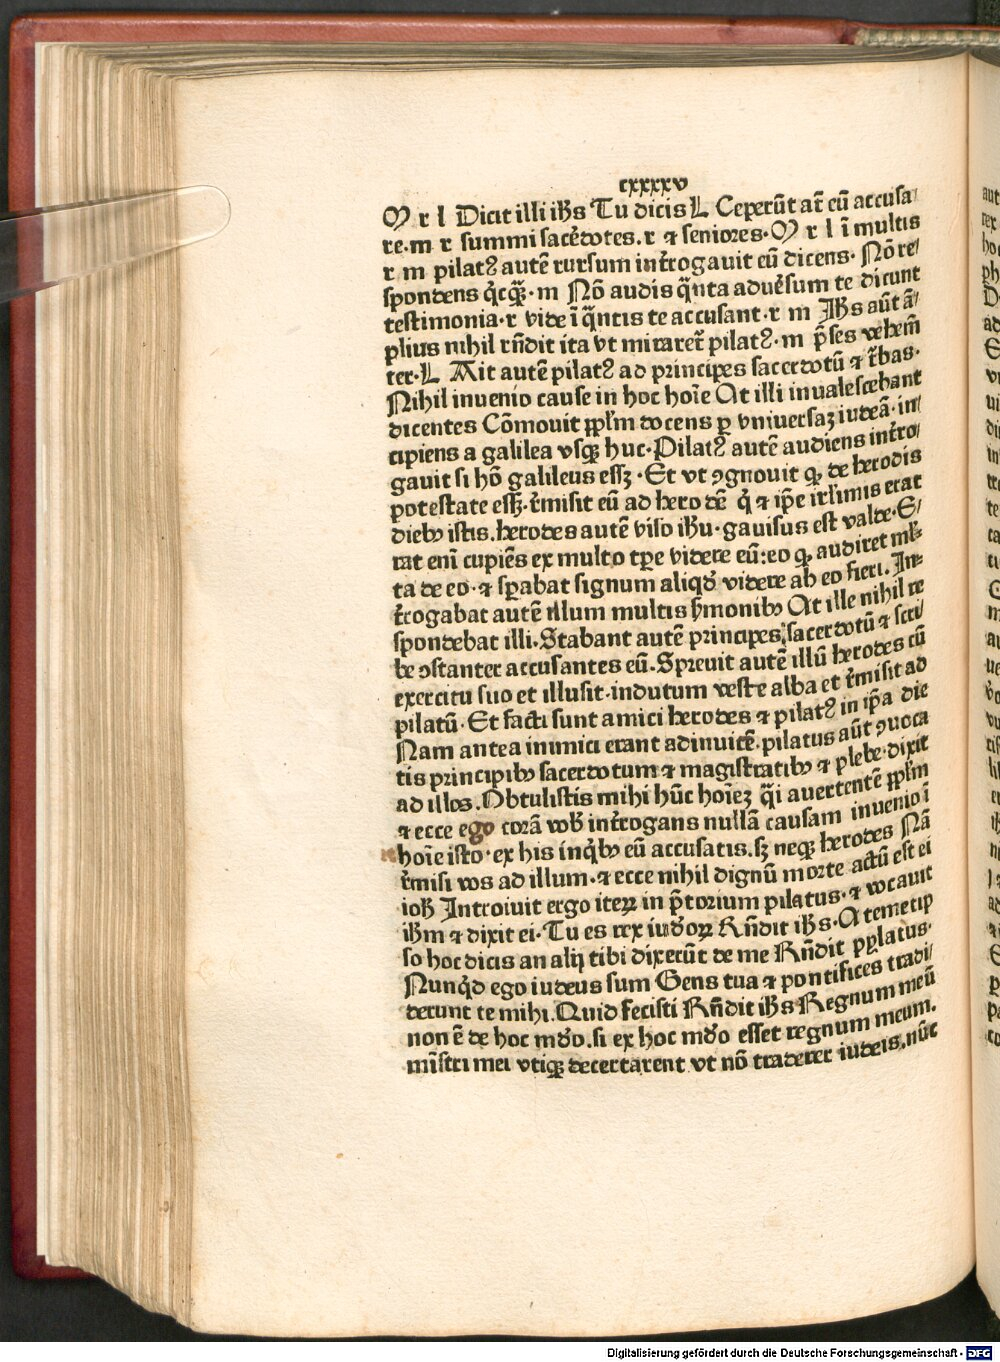 cxxxxv
M r l Dicit illi ihs Tu dicis L Ceperūt at̄ eū accusa
re.m r summi sacẽdotes.r ⁊ seniores.M r l ī multis
r m pilatꝰ autē rursum int̄rogauit eū dicens. Nō re/
spondens q̇cq̄ꝫ.m Nō audis q̄nta adūsum te dicunt
testimonia.r vide ī q̄ntis te accusant.r m Ihs aūt ā/
plius nihil rñdit ita vt miraret̄ pilatꝰ.m p̄ses vehem̄
ter.L Ait autē pilatꝰ ad principes sacerdotū ⁊ t̄bas.
Nihil inuenio cause in hoc hoīe At illi inualescebant
dicentes Cōmouit pplm docens ꝑ vniuersaꝫ iudeā.in/
cipiens a galilea vsqꝫ huc.Pilatꝰ autē audiens int̄ro/
gauit si hō galileus essꝫ.Et vt ꝯgnouit ꝙ de herodis
potestate essꝫ.t̄misit eū ad herodē q̇ ⁊ ip̄e irl̄imis erat
diebꝰ istis.herodes autē viso ihu.gauisus est valde.E/
rat enī cupiēs ex multo tp̄e videre eū:eo ꝙ audiret ml̄/
ta de eo.⁊ sꝑabat signum aliqd̄ videre ab eo fieri.In/
t̄rogabat autē illum multis s̄monibꝰ At ille nihil re
spondebat illi.Stabant autē principes sacerdotū ⁊ scri/
be ꝯstanter accusantes eū.Spreuit autē illū herodes cū
exercitu suo et illusit.indutum veste alba et t̄misit ad
pilatū.Et facti sunt amici herodes ⁊ pilatꝰ in ip̄a die
Nam antea inimici erant adinuicē.pilatus aūt ꝯuoca
tis principibꝰ sacerdotum ⁊ magistratibꝰ ⁊ plebe.dixit
ad illos.Obtulistis mihi hūc hoīeꝫ q̄i auertentē pplm
⁊ ecce ego corā vob̄ int̄rogans nullā causam inuenio ī
hoīe isto.ex his inq̇bꝰ eū accusatis.sꝫ neqꝫ herodes Nā
t̄misi vos ad illum.⁊ ecce nihil dignū morte actū est ei
ioh̄ Introiuit ergo iteꝝ in p̄torium pilatus.⁊ vocauit
ihm ⁊ dixit ei.Tu es rex iud̄oꝝ Rñdit ihs.A temetip
so hoc dicis an alij tibi dixerūt de me Rñdit pylatus.
Nunqd̄ ego iudeus sum Gens tua ⁊ pontifices tradi/
derunt te mihi.Quid fecisti Rñdit ihs Regnum meū
non ē de hoc mūdo.si ex hoc mūdo esset regnum meum.
mīstri mei vtiqꝫ decertarent vt nō traderer iudeis.nūc
aut
rex
hoc
ph
Digitalisierung gefördert durch die Deutsche Forschungsgemeinschaft - DFG